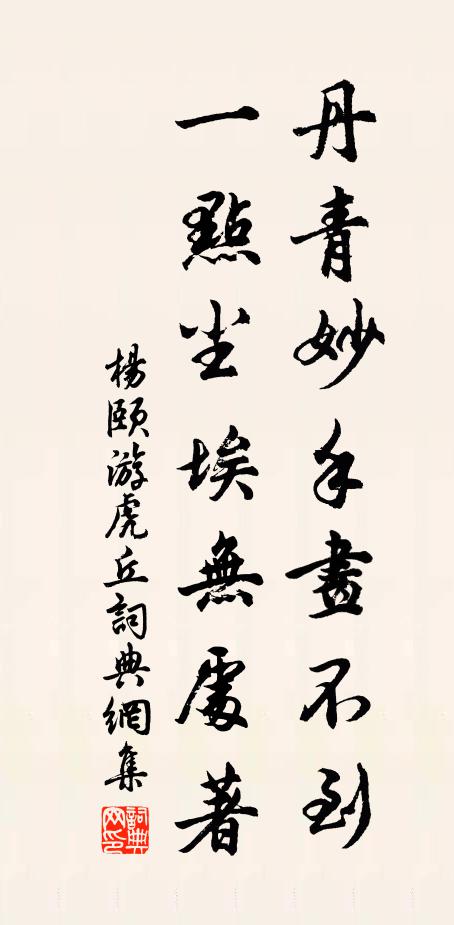 丹青妙手畫不到
一點尘埃無處著
楊頤游虎丘詞典網集
詞典网印